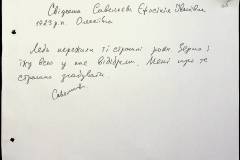 Свідчення Савельєва Єфросинія Іванівна
1923 р.н. Олексіївка
Ледь пережили ті страшні роки. Зерно і
їжу всю у нас відібрали. Мені про те
страшно згадувати